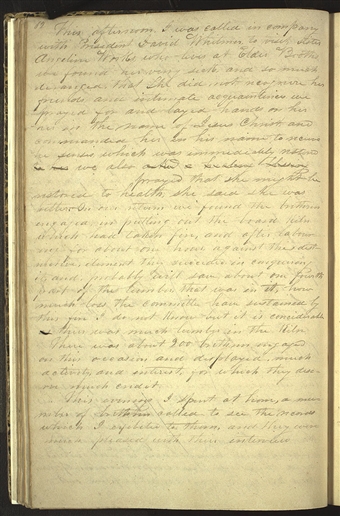 This afternoon I was called in company
with President David Whitmer to visit Sister
Angeline Works who lives at Elder Booths
we found her very sick, and so much
deranged, that She did not recognize her
friends and intimate acquaintances we
prayed for and layed hands on her
in the name of Jesus Christ and
commanded her in his name to receive
her senses which was immediately restored
we also
prayed that she might be
restored to health, she said she was
better. On our return we found the brethren
engaged in putting out the board kiln
which had taken fire, and after labor-
ing for about one hour against this dist-
ructive element they succeeded in conquering
it, and, probably will save about one fourth
part of the lumber that was in it, how
much loss the committee have sustained by
this fire I do not know but it is considerable
there was much lumber in the kiln
There was about 200 brethren engaged
on this occasion and displayed, much
activity, and interest, for which they deserve
much credit.
This evening I spent at home, a num-
ber of brethren called to see the records
which I exhibited to them, and they were
much pleased with their interview